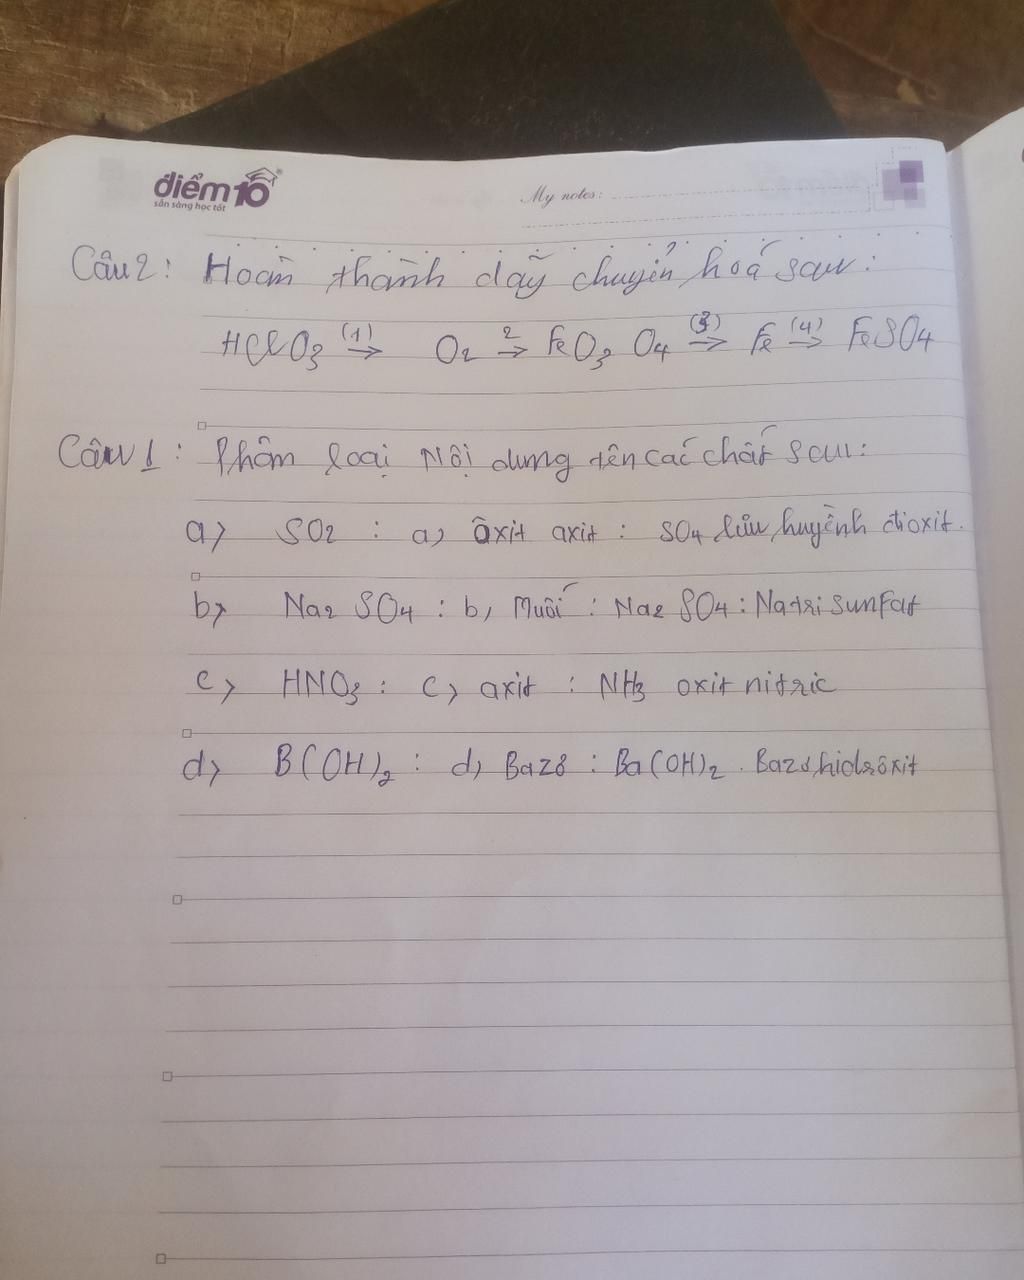 điểm10
sẵn sàng học tốt
My notes:
Câu 2: Hoàn thành dãy chuyển hoá sau:
HClO3 (1)→ O2 2→ FeO3 O4 (3)→ Fe (4)→ FeSO4
Câu 1: Phân loại Nội dung tên các chất sau:
a) SO2 : a) Ôxit axit : SO4 lưu huyềnh đioxit.
b) Na2 SO4 : b, Muối : Na2 SO4 : Natri sunfat
c) HNO3 : c) axit : NH3 oxit nitric
d) B(OH)2 : d) Bazơ : Ba(OH)2 . Bazơ hidrôxit